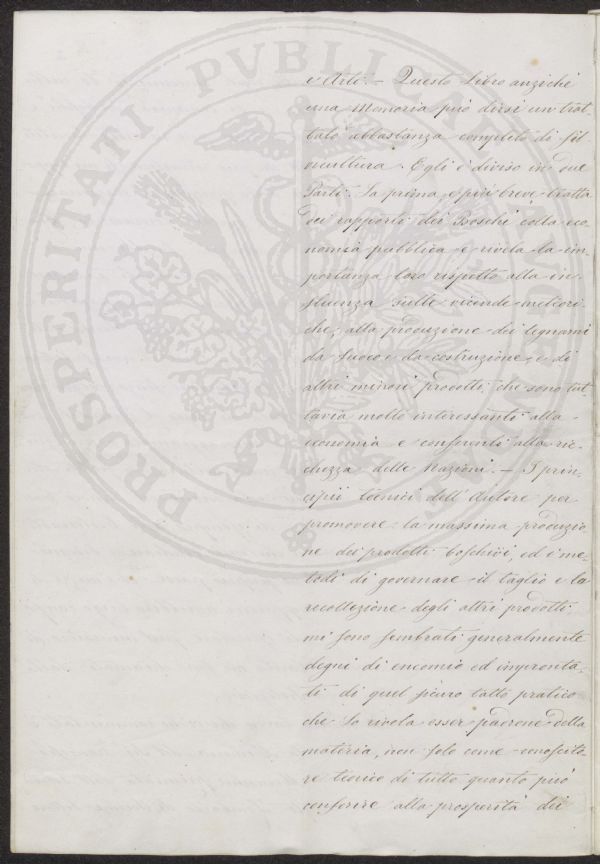 e Arti. – Questo Libro anziché
una Memoria può dirsi un trat-
tato abbastanza completo di sil-
vicultura. Egli è diviso in due
Parti. La prima e più breve tratta
dei rapporti dei Boschi colla eco-
nomia pubblica e rivela la im-
portanza loro rispetto alla in-
fluenza sulle vicende meteori-
che, alla produzione dei legnami
da fuoco e da costruzione, e di
altri minori prodotti, che sono tut-
tavia molto interessanti alla
economia e conferenti alla ric-
chezza delle Nazioni. – I prin-
cipii tecnici dell'Autore per
promovere la massima produzio-
ne dei prodotti boschivi, ed i me-
todi di governare il taglio e la
recollezione degli altri prodotti,
mi sono sembrati generalmente
degni di encomio ed impronta-
ti di quel sicuro tatto pratico
che lo rivela esser padrone della
materia, non solo come conoscito-
re teorico di tutto quanto può
conferire alla prosperità dei
PROSPERITATI PVBLICAE